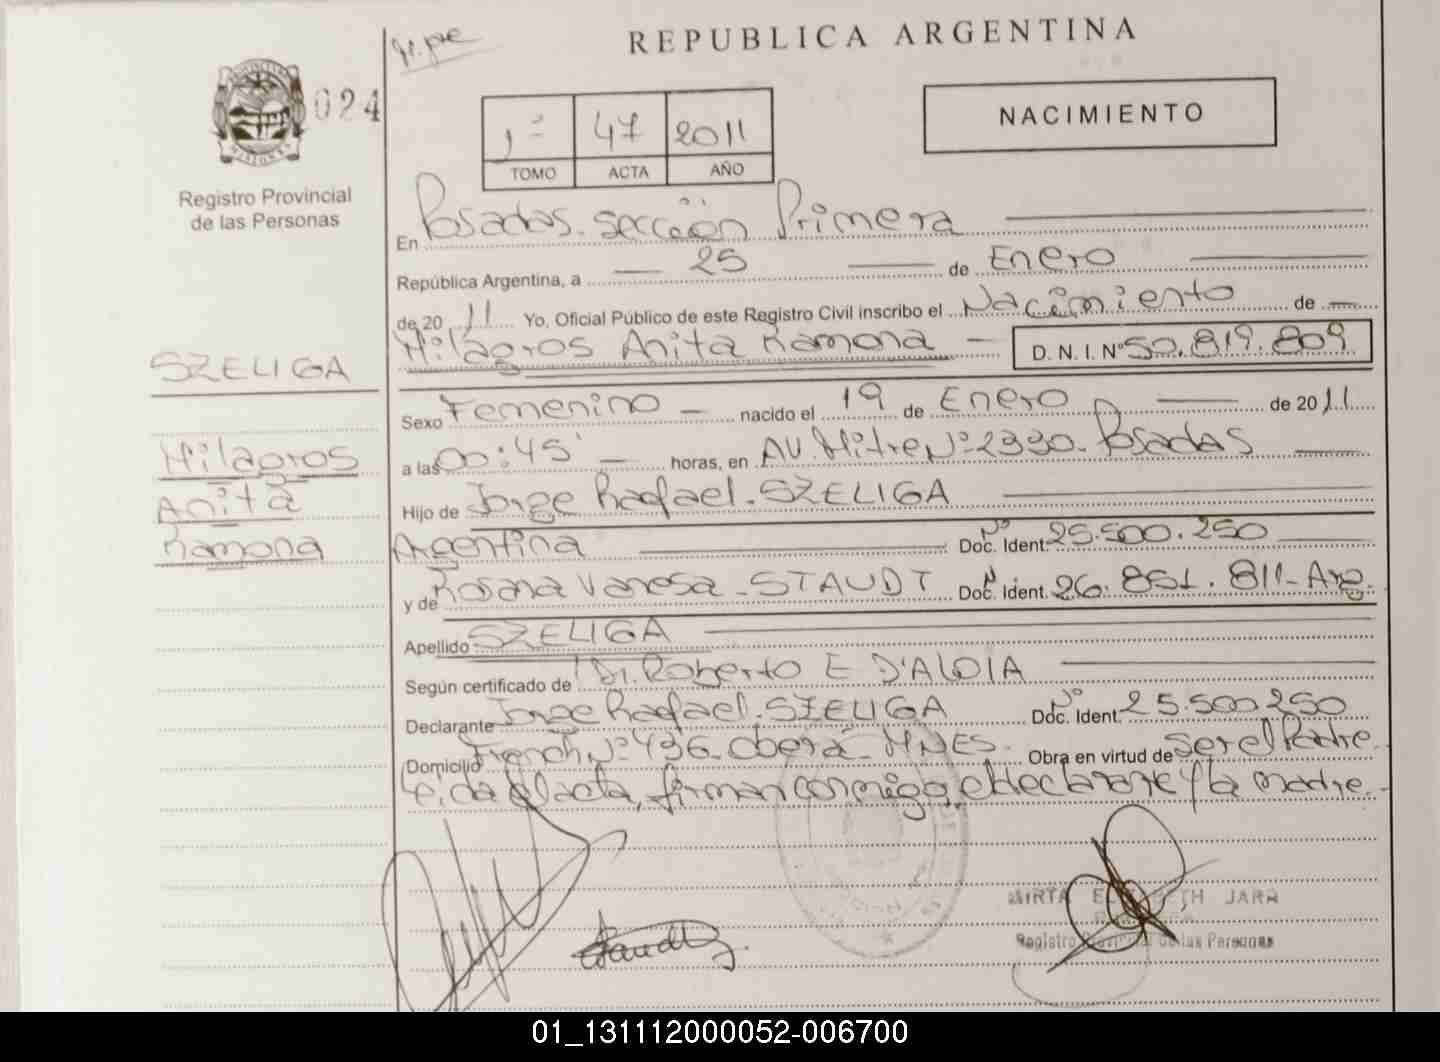 REPUBLICA ARGENTINA
024
1º 47 2011
TOMO ACTA AÑO
NACIMIENTO
Registro Provincial
de las Personas
En Posadas. sección Primera
República Argentina, a 25 de Enero
de 2011 Yo. Oficial Público de este Registro Civil inscribo el Nacimiento de
Milagros Anita Ramona D. N. I. Nº 50.819.809
SZELIGA
Sexo Femenino nacido el 19 de Enero de 2011
Milagros
a las 00:45' horas, en AV. Mitre Nº 2330. Posadas
Anita
Hijo de Jorge Rafael. SZELIGA
Ramona
Argentina Nº Doc. Ident. 25.500.250
y de Rosana Vanesa. STAUDT Nº Doc. Ident. 26.851.811- Arg.
Apellido SZELIGA
Según certificado de Dr. Roberto E D'ALOIA
Declarante Jorge Rafael. SZELIGA Nº Doc. Ident. 25.500.250
Domicilio French Nº 436. Oberá- MNES. Obra en virtud de Ser el Padre.
Leida el acta, firman conmigo, el declarante y la madre.
MIRTA JARA
Registro Provincial de las Personas
01_131112000052-006700